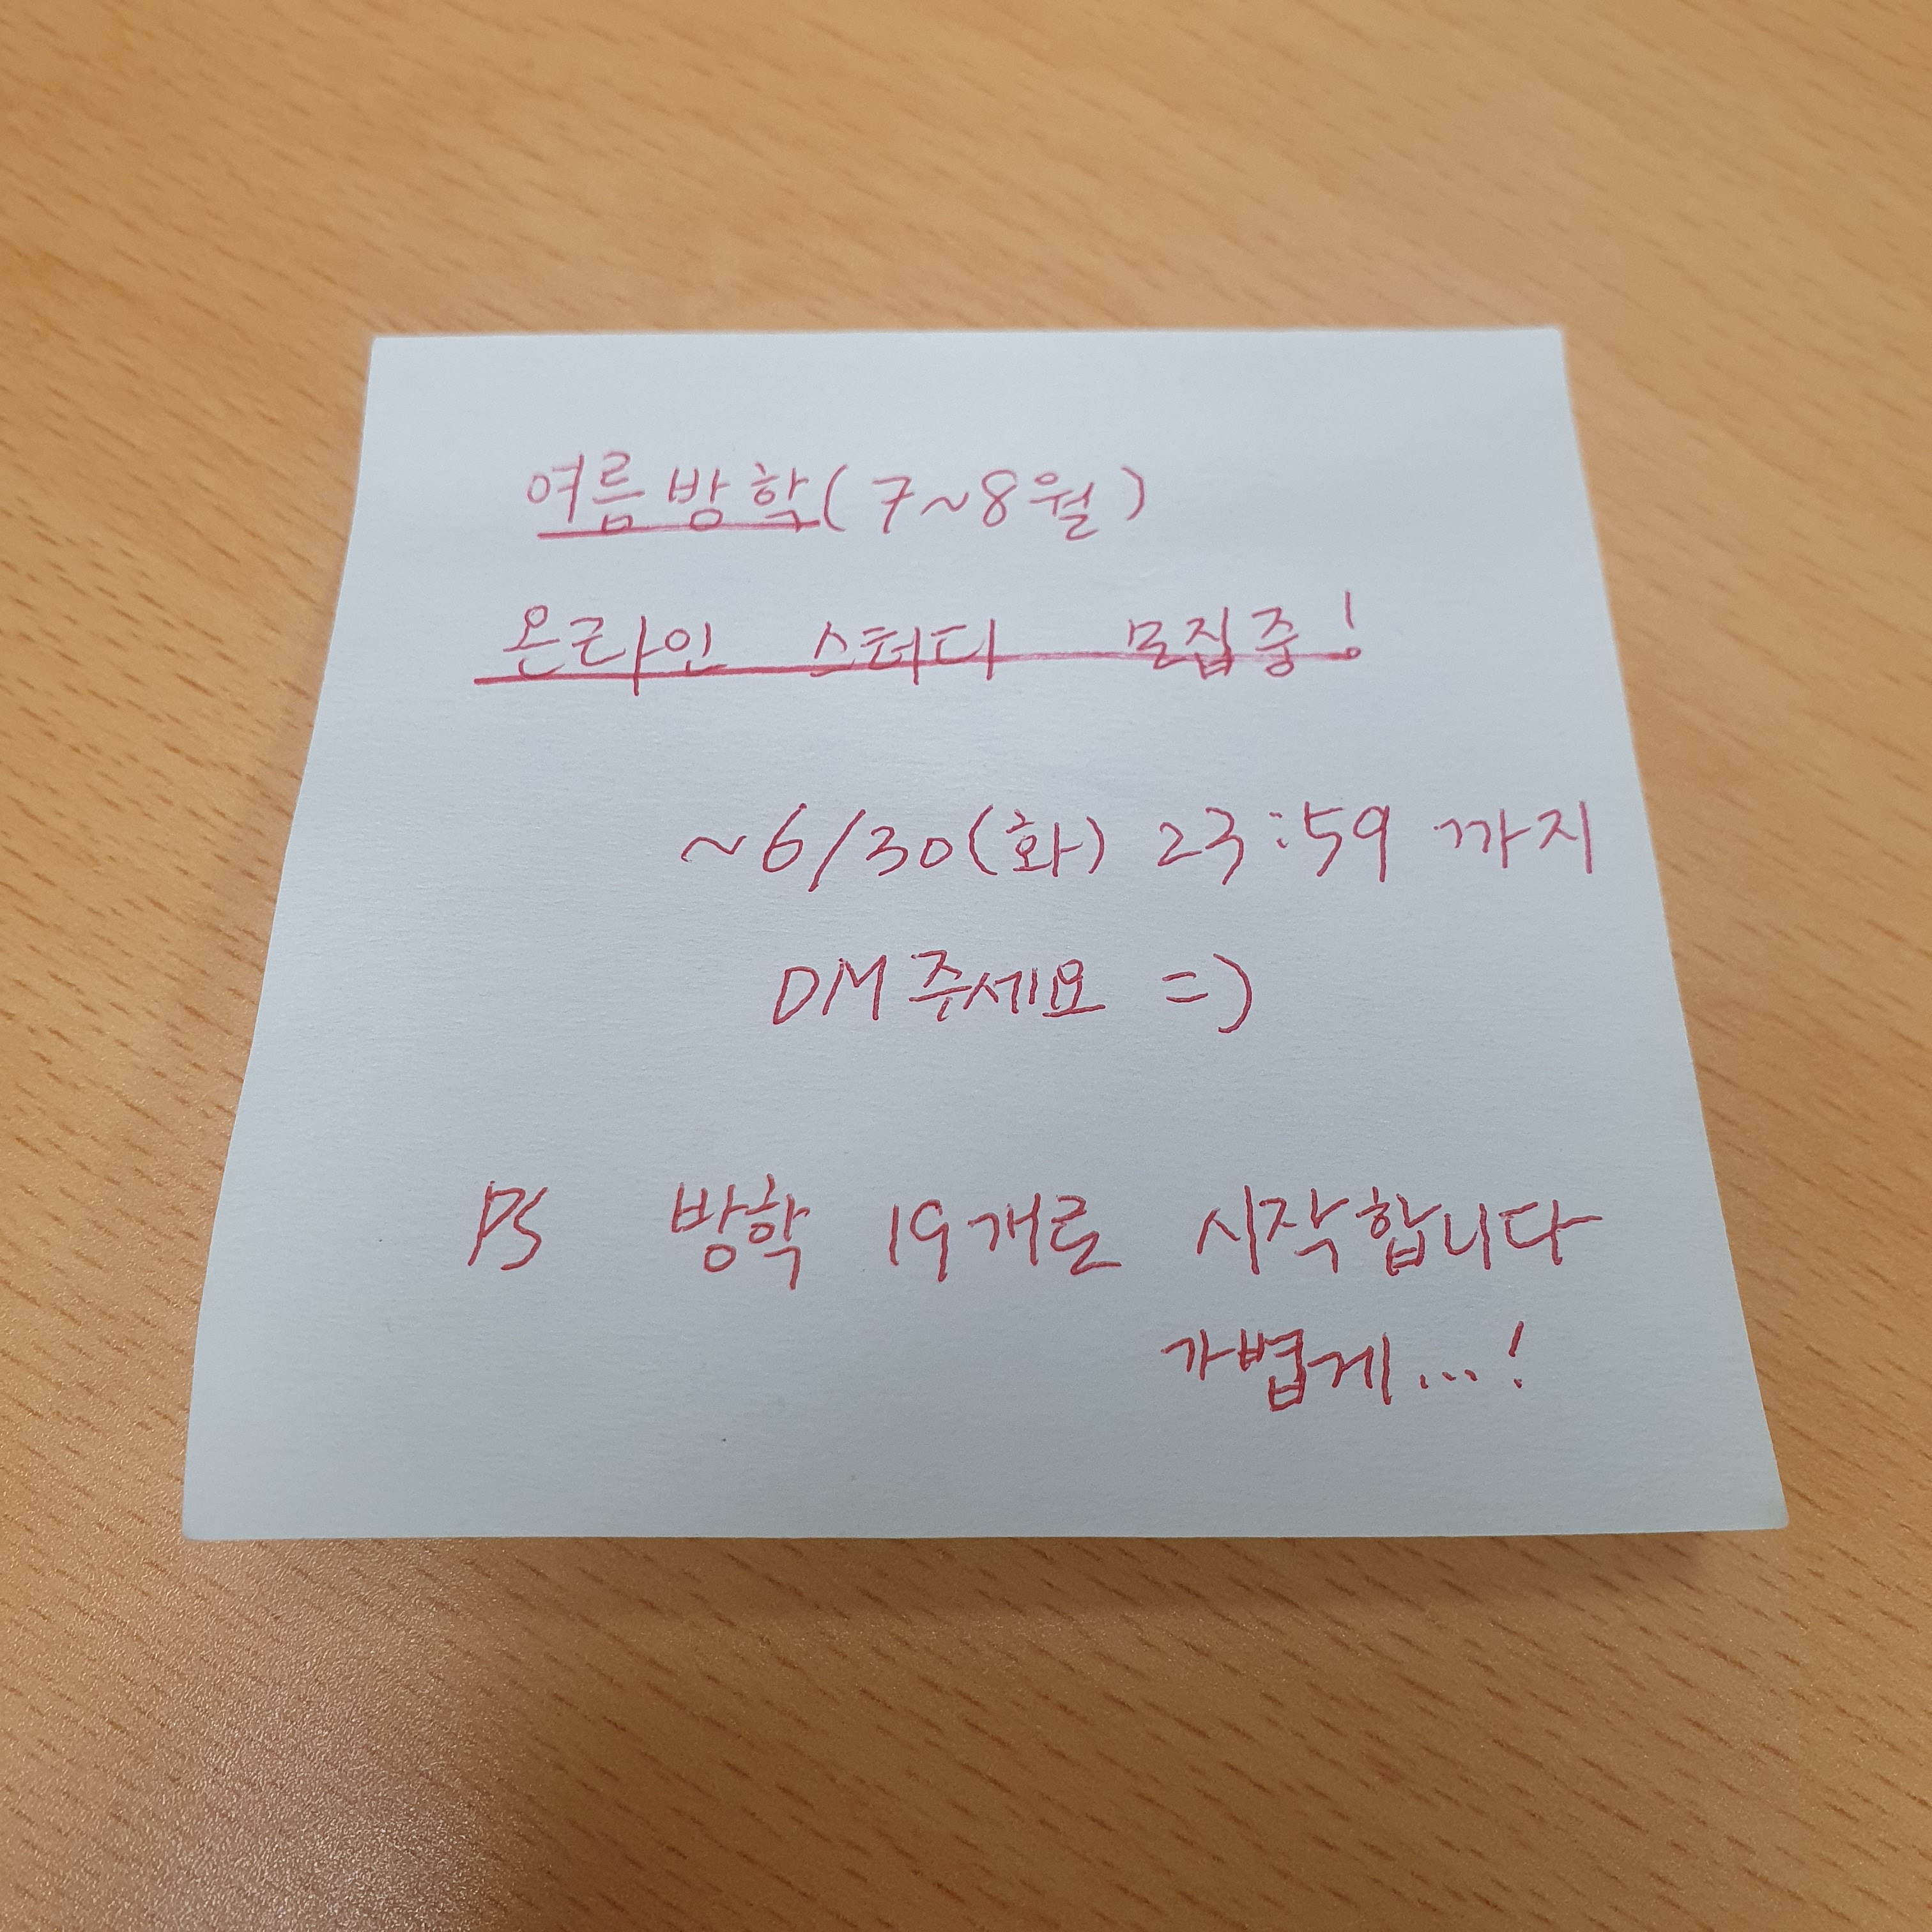 여름방학(7~8월)
온라인 스터디 모집중!
~6/30(화) 23:59 까지
DM 주세요 =)
PS 방학 19개로 시작합니다
가볍게...!